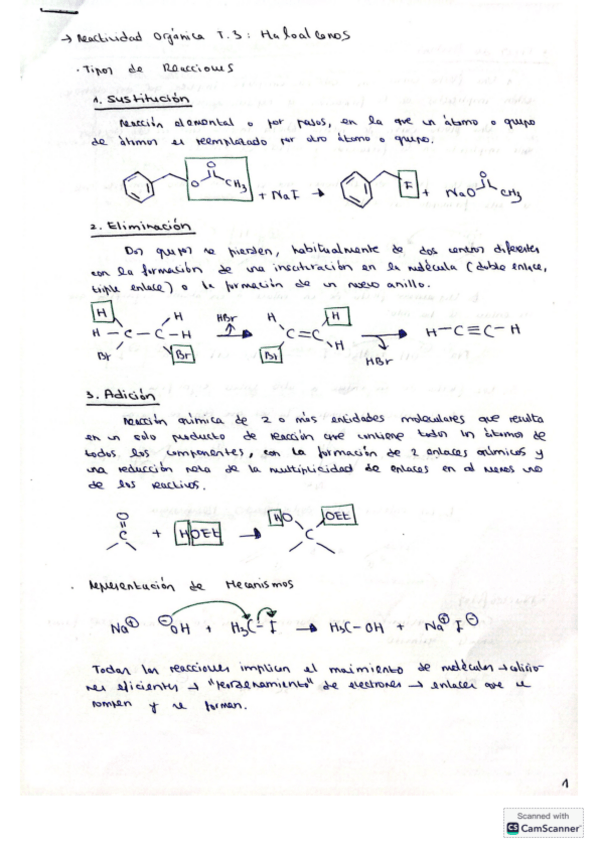 → Reactividad Orgánica T.3: Haloalcanos
· Tipos de Reacciones
1. Sustitución
Reacción elemental o por pasos, en la que un átomo o grupo
de átomos es reemplazado por otro átomo o grupo.
O
O CH3 + NaI → I + NaO O CH3
2. Eliminación
Dos grupos se pierden, habitualmente de dos centros diferentes
con la formación de una insaturación en la molécula (doble enlace,
triple enlace) o la formación de un nuevo anillo.
H H HBr H H
H - C - C - H → C = C → H-C≡C-H
Br Br Br H HBr
3. Adición
Reacción química de 2 o más entidades moleculares que resulta
en un solo producto de reacción que contiene todos los átomos de
todos los componentes, con la formación de 2 enlaces químicos y
una reducción neta de la multiplicidad de enlaces en al menos uno
de los reactivos.
O HO OEt
C + HOEt → C
· Representación de Mecanismos
Na⊕ ⊖OH + H3C-I → H3C-OH + Na⊕ I⊖
Todas las reacciones implican el movimiento de moléculas → colisio-
nes eficientes → "reordenamiento" de electrones → enlaces que se
rompen y se forman.
1
Scanned with
CS CamScanner